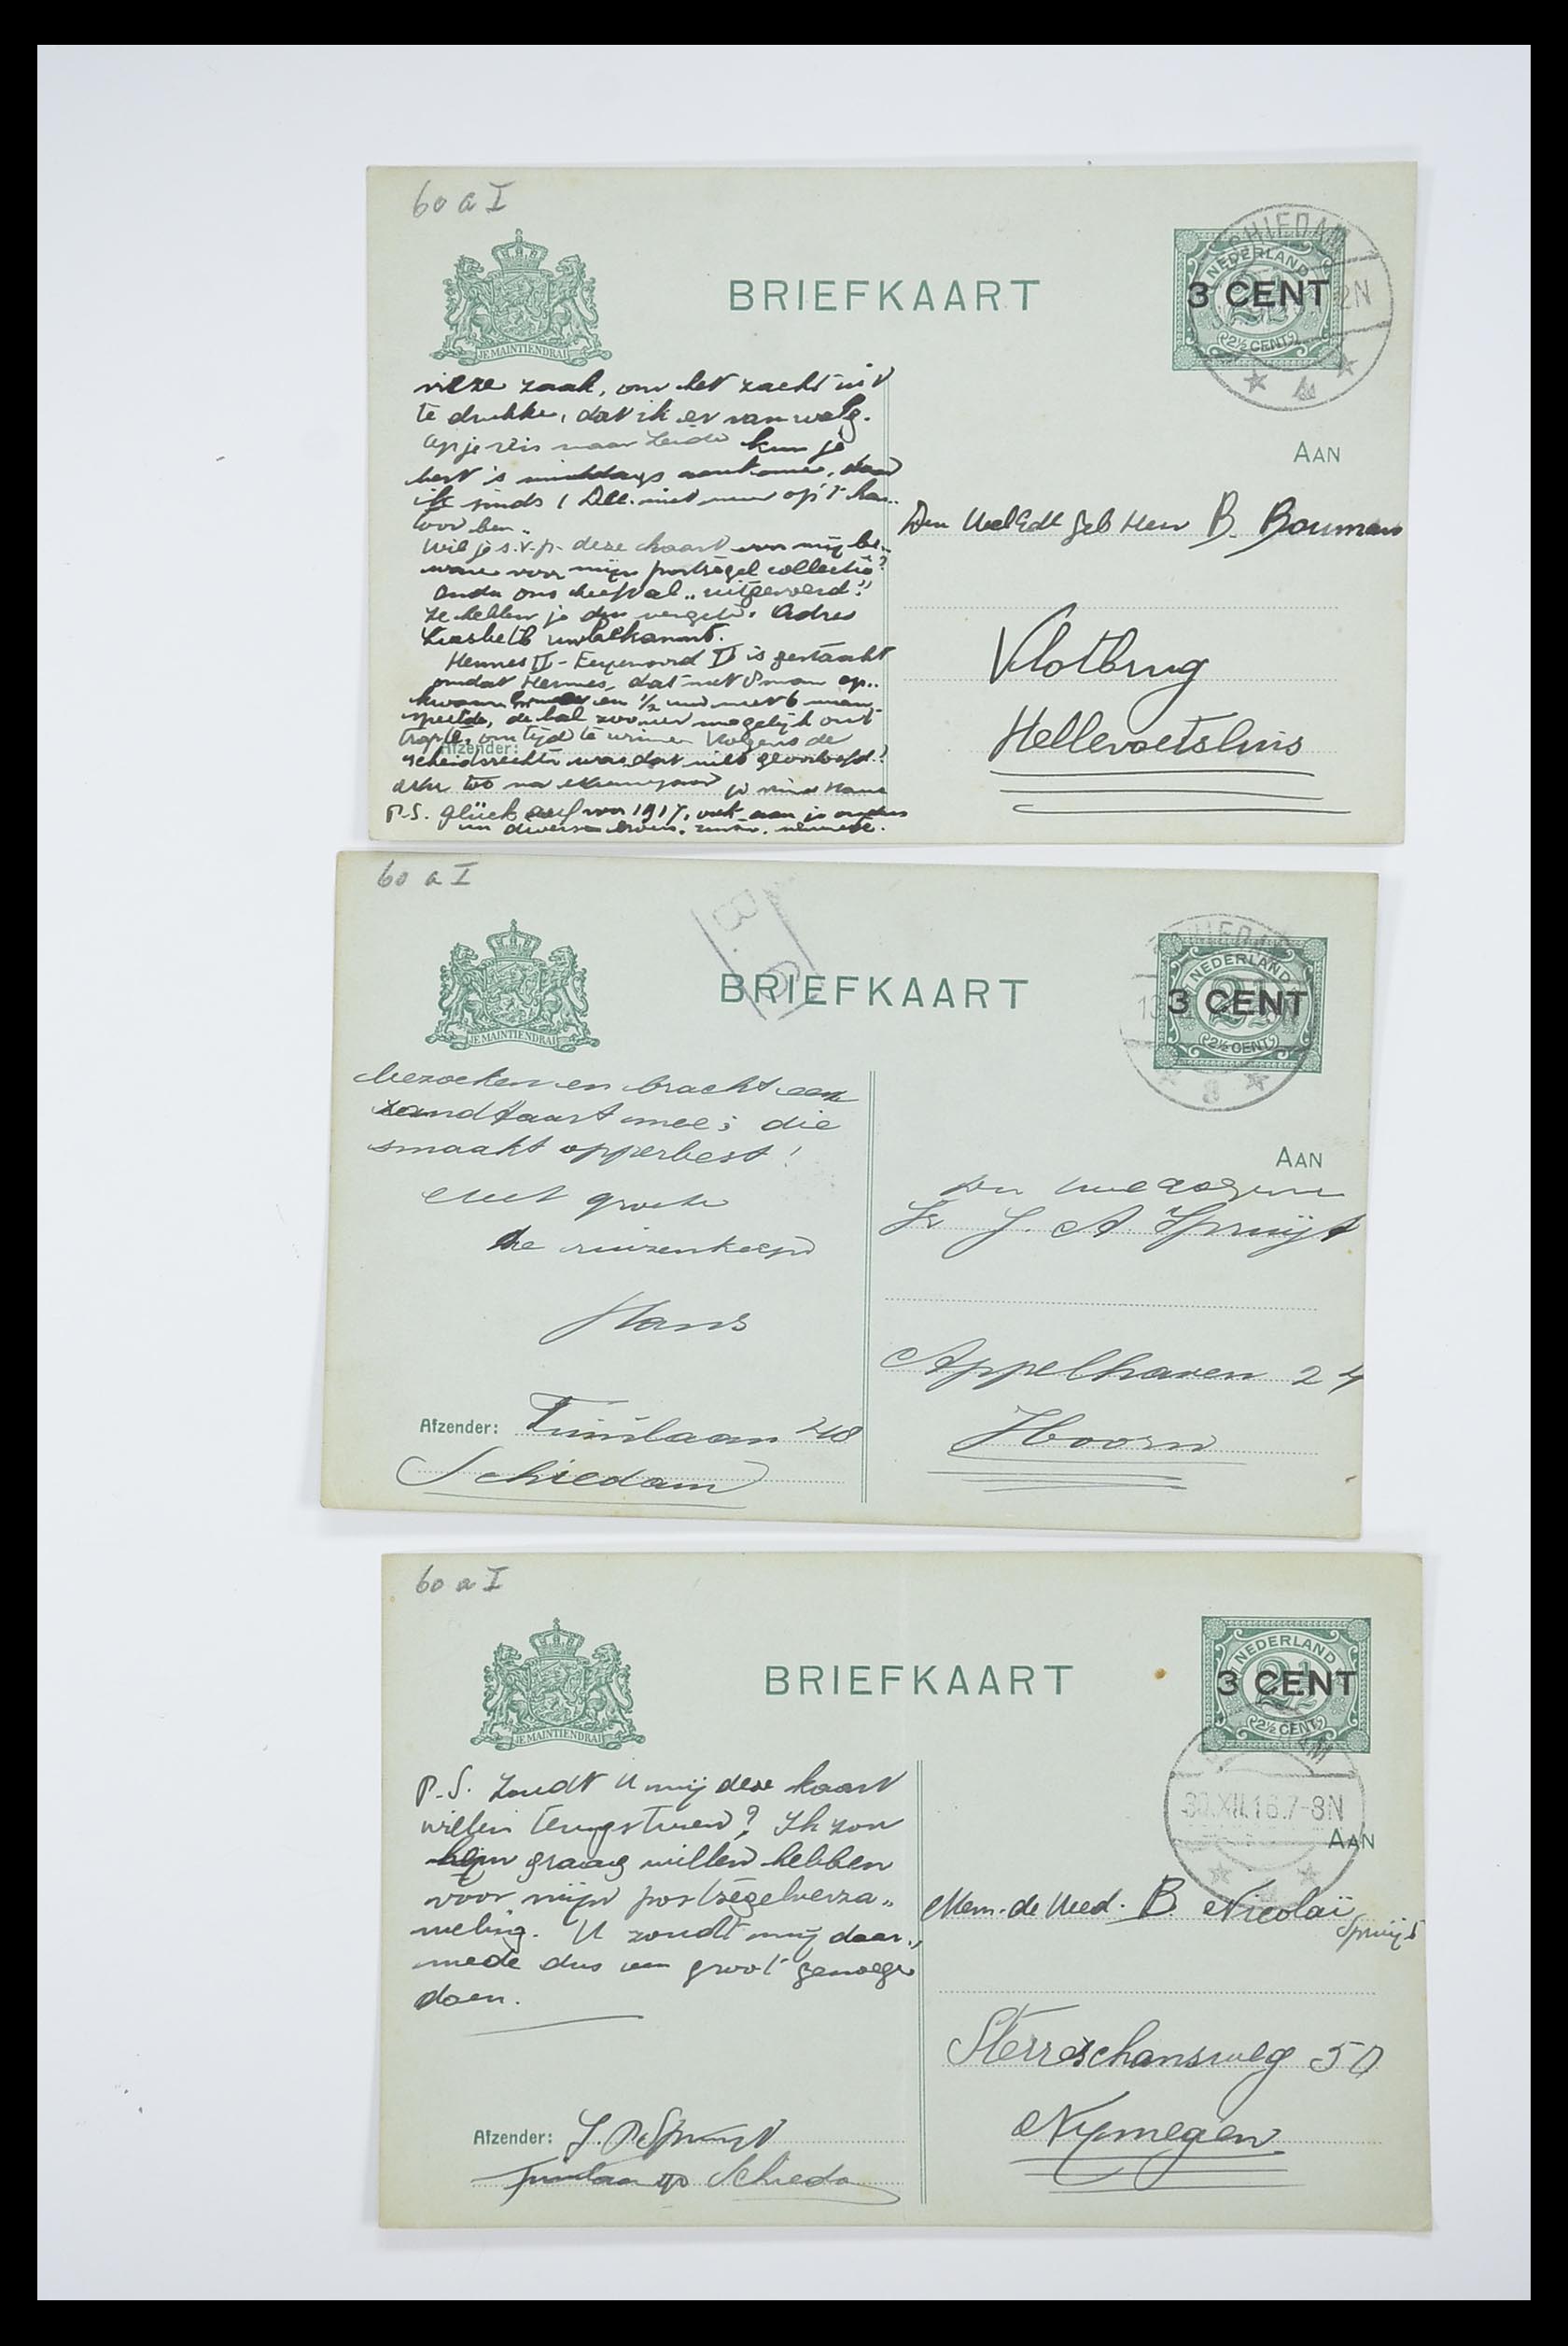 60 a I
BRIEFKAART
SCHIEDAM
2N
NEDERLAND
3 CENT
2½ CENT
JE MAINTIENDRAI
vieze zaak, om het zacht uit
te drukke, dat ik er van walg.
Op je reis naar Leide kun je
best 's middags aankome, daar
ik sinds 1 Dec. niet meer op 't kan-
toor ben.
Wil je s.v.p. deze kaart voor mij be-
ware voor mijn postzegel collectie?
ons elftal „uitgevoerd"?
Ze hebben je dus vergete. Adres
Liesbeth unbekannt.
Hermes II - Feyenoord II is gestaakt
omdat Hermes, dat met 8 man op-
kwam en ½ uur met 6 man
speelde, de bal zooveer mogelijk out
trapte, om tijd te winnen. Volgens de
Afzender:
scheidsrechter was dat niet geoorloofd!
je vriend Hans
P.S. Glück auf voor 1917, ook aan je ouders
AAN
Den WelEdel Geb Heer B. Boumans
Vlotbrug
Hellevoetsluis
60 a I
BRIEFKAART
SCHIEDAM
NEDERLAND
3 CENT
2½ CENT
JE MAINTIENDRAI
bezoeken en bracht een
zandtaart mee; die
smaakt opperbest!
Met groete
Hans
Afzender: Tuinlaan 48
Schiedam
AAN
J. A. Spruijt
Appelhaven 24
Hoorn
60 a I
BRIEFKAART
NEDERLAND
3 CENT
2½ CENT
JE MAINTIENDRAI
30.XII.16.7-8N
P.S. Zoudt U mij deze kaart
willen terugsturen? Ik zou
hem graag willen hebben
voor mijn postzegelverza„
meling. U zoudt mij daar„
mede dus een groot genoege
doen.
Afzender: J. P. Spruyt
Tuinlaan Schieda
AAN
Mem. de Wed. B. Nicolaï
Spruijt
Sterreschansweg 50
Nymegen